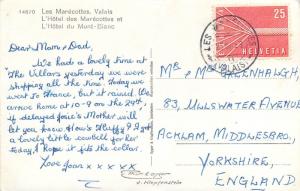 14670 Les Marécottes, Valais
L'Hôtel des Marécottes et
L'Hôtel du Mont-Blanc
Dear Mam & Dad,
We had a lovely time at
The Villars yesterday we went
shopping all the time. Today we
went to France, but it rained. We
arrive Home at 10-9 on the 29th,
if delayed Joie's Mother will
let you know. How's Fluffy? I got
a lovely little cowbell for her
today, I hope it fits the collar.
Love Joan x x x x x
LES
(VALAIS)
25
HELVETIA
MR & MRS GREENHALGH,
83, ULLSWATER AVENUE
ACKLAM, MIDDLESBRO,
YORKSHIRE,
ENGLAND